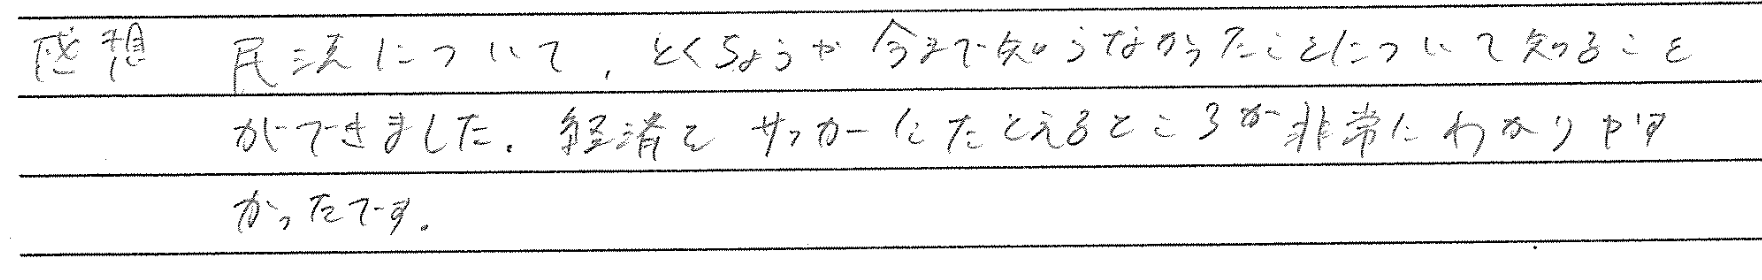 感想 民法について、とくちょうや今まで知らなかったことについて知ること
ができました。経済をサッカーにたとえるところが非常にわかりやす
かったです。